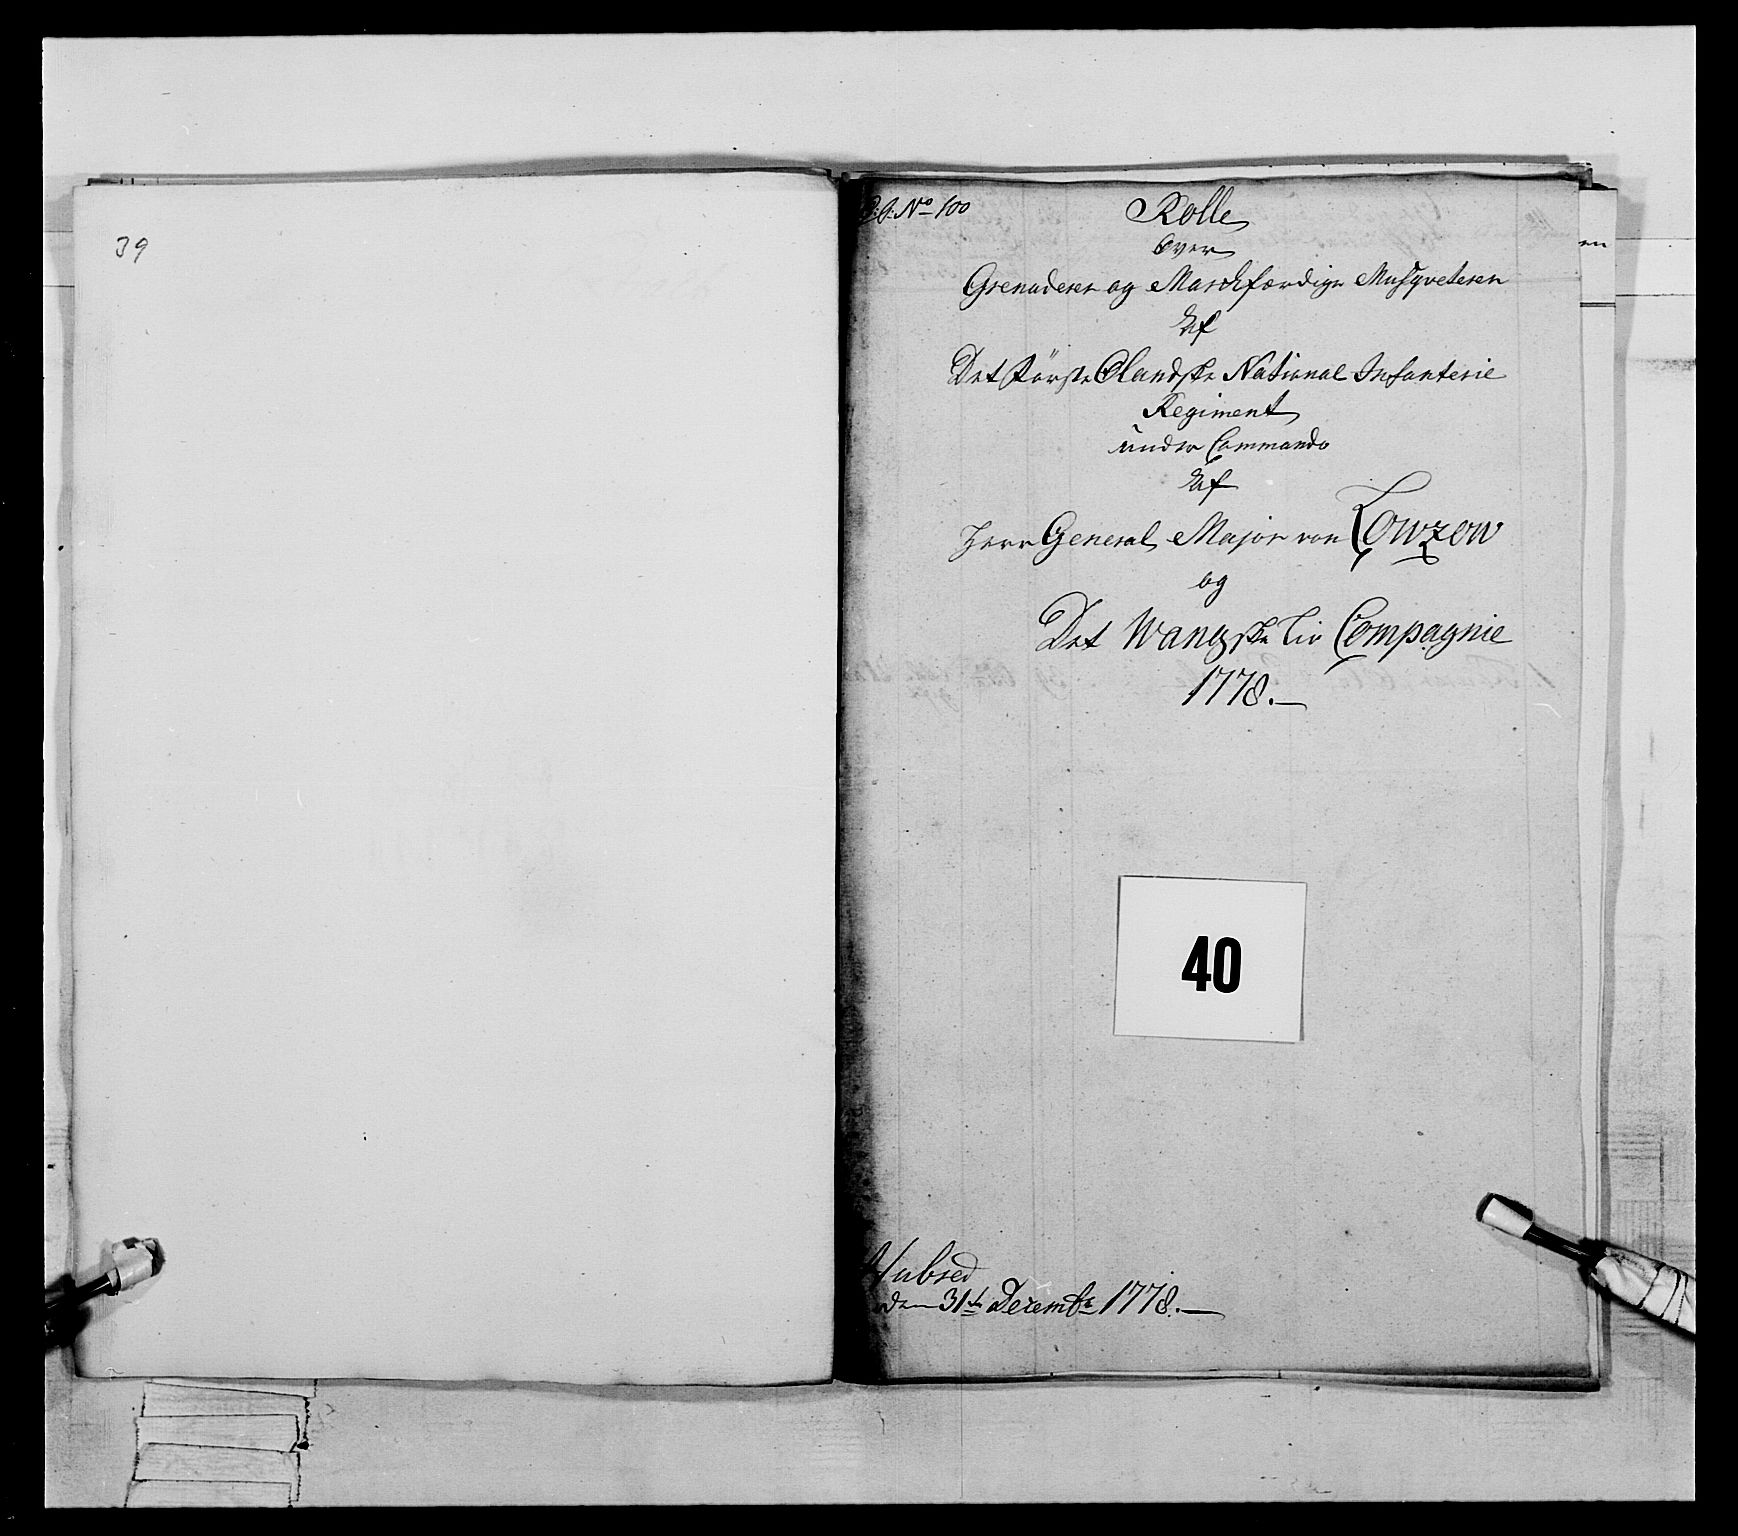 39
No 100
Rolle
Over
Grenaderer og Marchfærdige Musqveterer
Af
Det Første Olandske National Infanterie
Regiment
under Commando
Af
Herr General Major von Lowzow
og
Det Wangske Liv Compagnie
1778.
40
en
den 31te Decembr 1778.